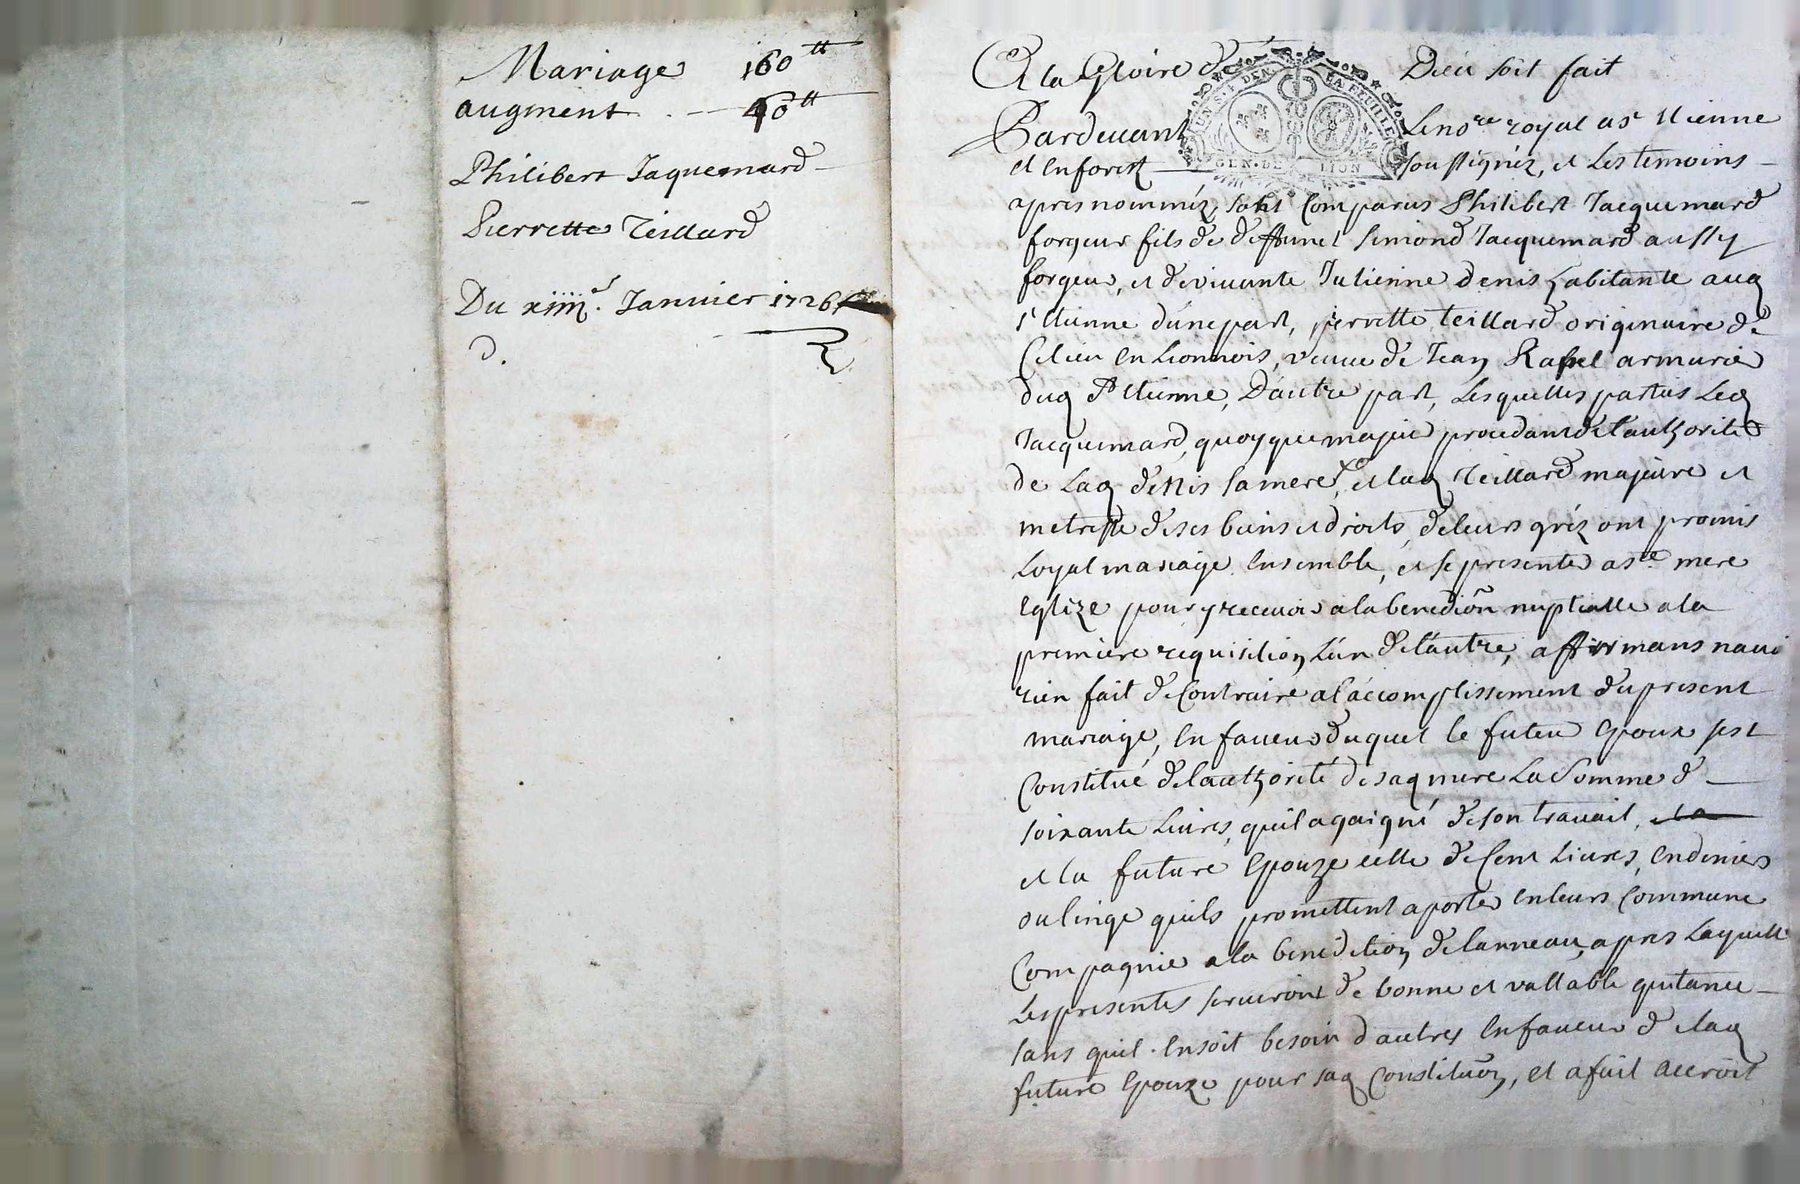 Mariage 160tt
augment . — 40tt
Philibert Jaquemard
Pierrette Teillard
Du xiiij.e Janvier 1726
D.
A la Gloire de Dieu soit fait
UNS. 4 DEN LA FEUILLE
GEN. DE LION
Pardevant Le nore royal a st Etienne
et en forest soussignéz, et Les temoins
apres nomméz, sont Comparus Philibert Jacquemard
forgeur fils de deffunct Simond Jacquemard aussy
forgeur, et de vivante Julienne Denis habitante aud
st Etienne d'une part, pierrette teillard originaire de
Ce lieu en Lionnois, veuve de Jean Rafiel armurier
dud St Etienne, D'autre part, Lesquelles parties Led
Jacquemard, quoyque majeur procedant de l'authorité
de Lad Denis sa mere, et lad Teillard majeure et
metresse de ses biens et droits, de leurs gréz ont promis
Loyal mariage Ensemble, et se presenter a ste mere
Eglize pour y recevoir a la benedi͠on nuptialle a la
premiere requisition L'un de l'autre, affirmans n'avoir
rien fait de Contraire a l'accomplissement du present
mariage, En faveur duquel le futeur Epoux s'est
Constitué de l'authorité de sad mere La Somme de
soixante Livres, qu'il a gaigné de son travail,
et la future Epouze celle de Cent Livres, en deniers
ou linge qu'ils promettent aporter en leurs Commune
Compagnie a la benediction de l'anneau, apres Laquelle
Les presentes serviront de bonne et vallable quitance
sans qu'il En soit besoin d'autres En faveur de Lad
future Epouze pour sad Constitu͠on, et a fait accroit